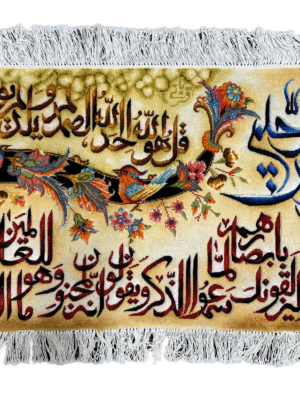 قل هو الله احد الله الصمد لم يلد و لم
ليزلقونك بابصارهم لما سمعوا الذكر و يقولون انه لمجنون و ما هو للعالمين